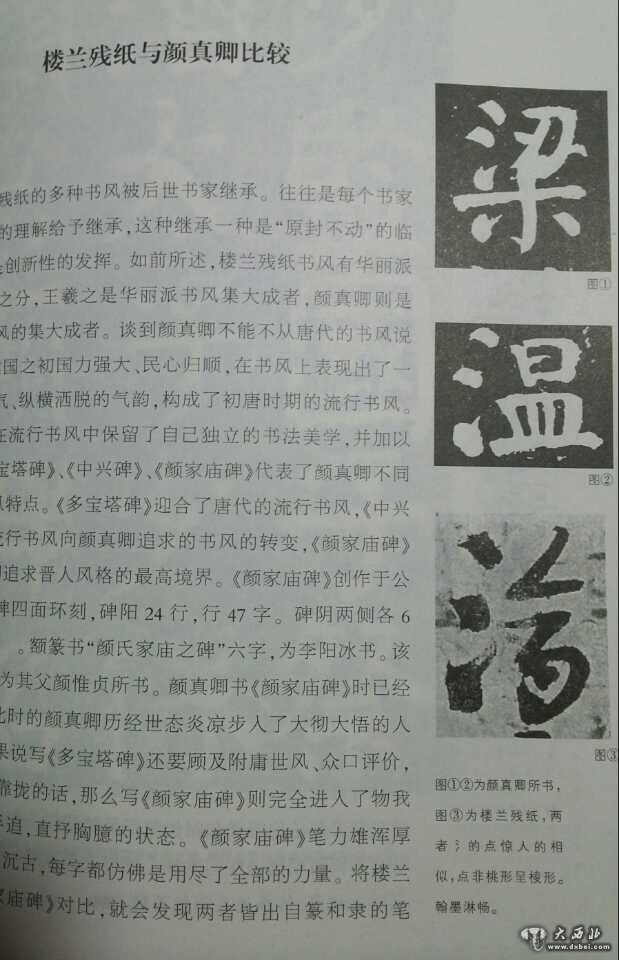 楼兰残纸与颜真卿比较
残纸的多种书风被后世书家继承。往往是每个书家
的理解给予继承，这种继承一种是“原封不动”的临
创新性的发挥。如前所述，楼兰残纸书风有华丽派
之分，王羲之是华丽派书风集大成者，颜真卿则是
风的集大成者。谈到颜真卿不能不从唐代的书风说
国之初国力强大、民心归顺，在书风上表现出了一
气、纵横洒脱的气韵，构成了初唐时期的流行书风。
在流行书风中保留了自己独立的书法美学，并加以
宝塔碑》、《中兴碑》、《颜家庙碑》代表了颜真卿不同
风特点。《多宝塔碑》迎合了唐代的流行书风，《中兴
流行书风向颜真卿追求的书风的转变，《颜家庙碑》
追求晋人风格的最高境界。《颜家庙碑》创作于公
碑四面环刻，碑阳 24 行，行 47 字。碑阴两侧各 6
。额篆书“颜氏家庙之碑”六字，为李阳冰书。该
为其父颜惟贞所书。颜真卿书《颜家庙碑》时已经
此时的颜真卿历经世态炎凉步入了大彻大悟的人
果说写《多宝塔碑》还要顾及附庸世风、众口评价，
靠拢的话，那么写《颜家庙碑》则完全进入了物我
手追，直抒胸臆的状态。《颜家庙碑》笔力雄浑厚
沉古，每字都仿佛是用尽了全部的力量。将楼兰
家庙碑》对比，就会发现两者皆出自篆和隶的笔
梁
图①
温
图②
图③
图①②为颜真卿所书，
图③为楼兰残纸，两
者氵的点惊人的相
似，点非桃形呈棱形。
翰墨淋畅。
大西北
www.dxbei.com